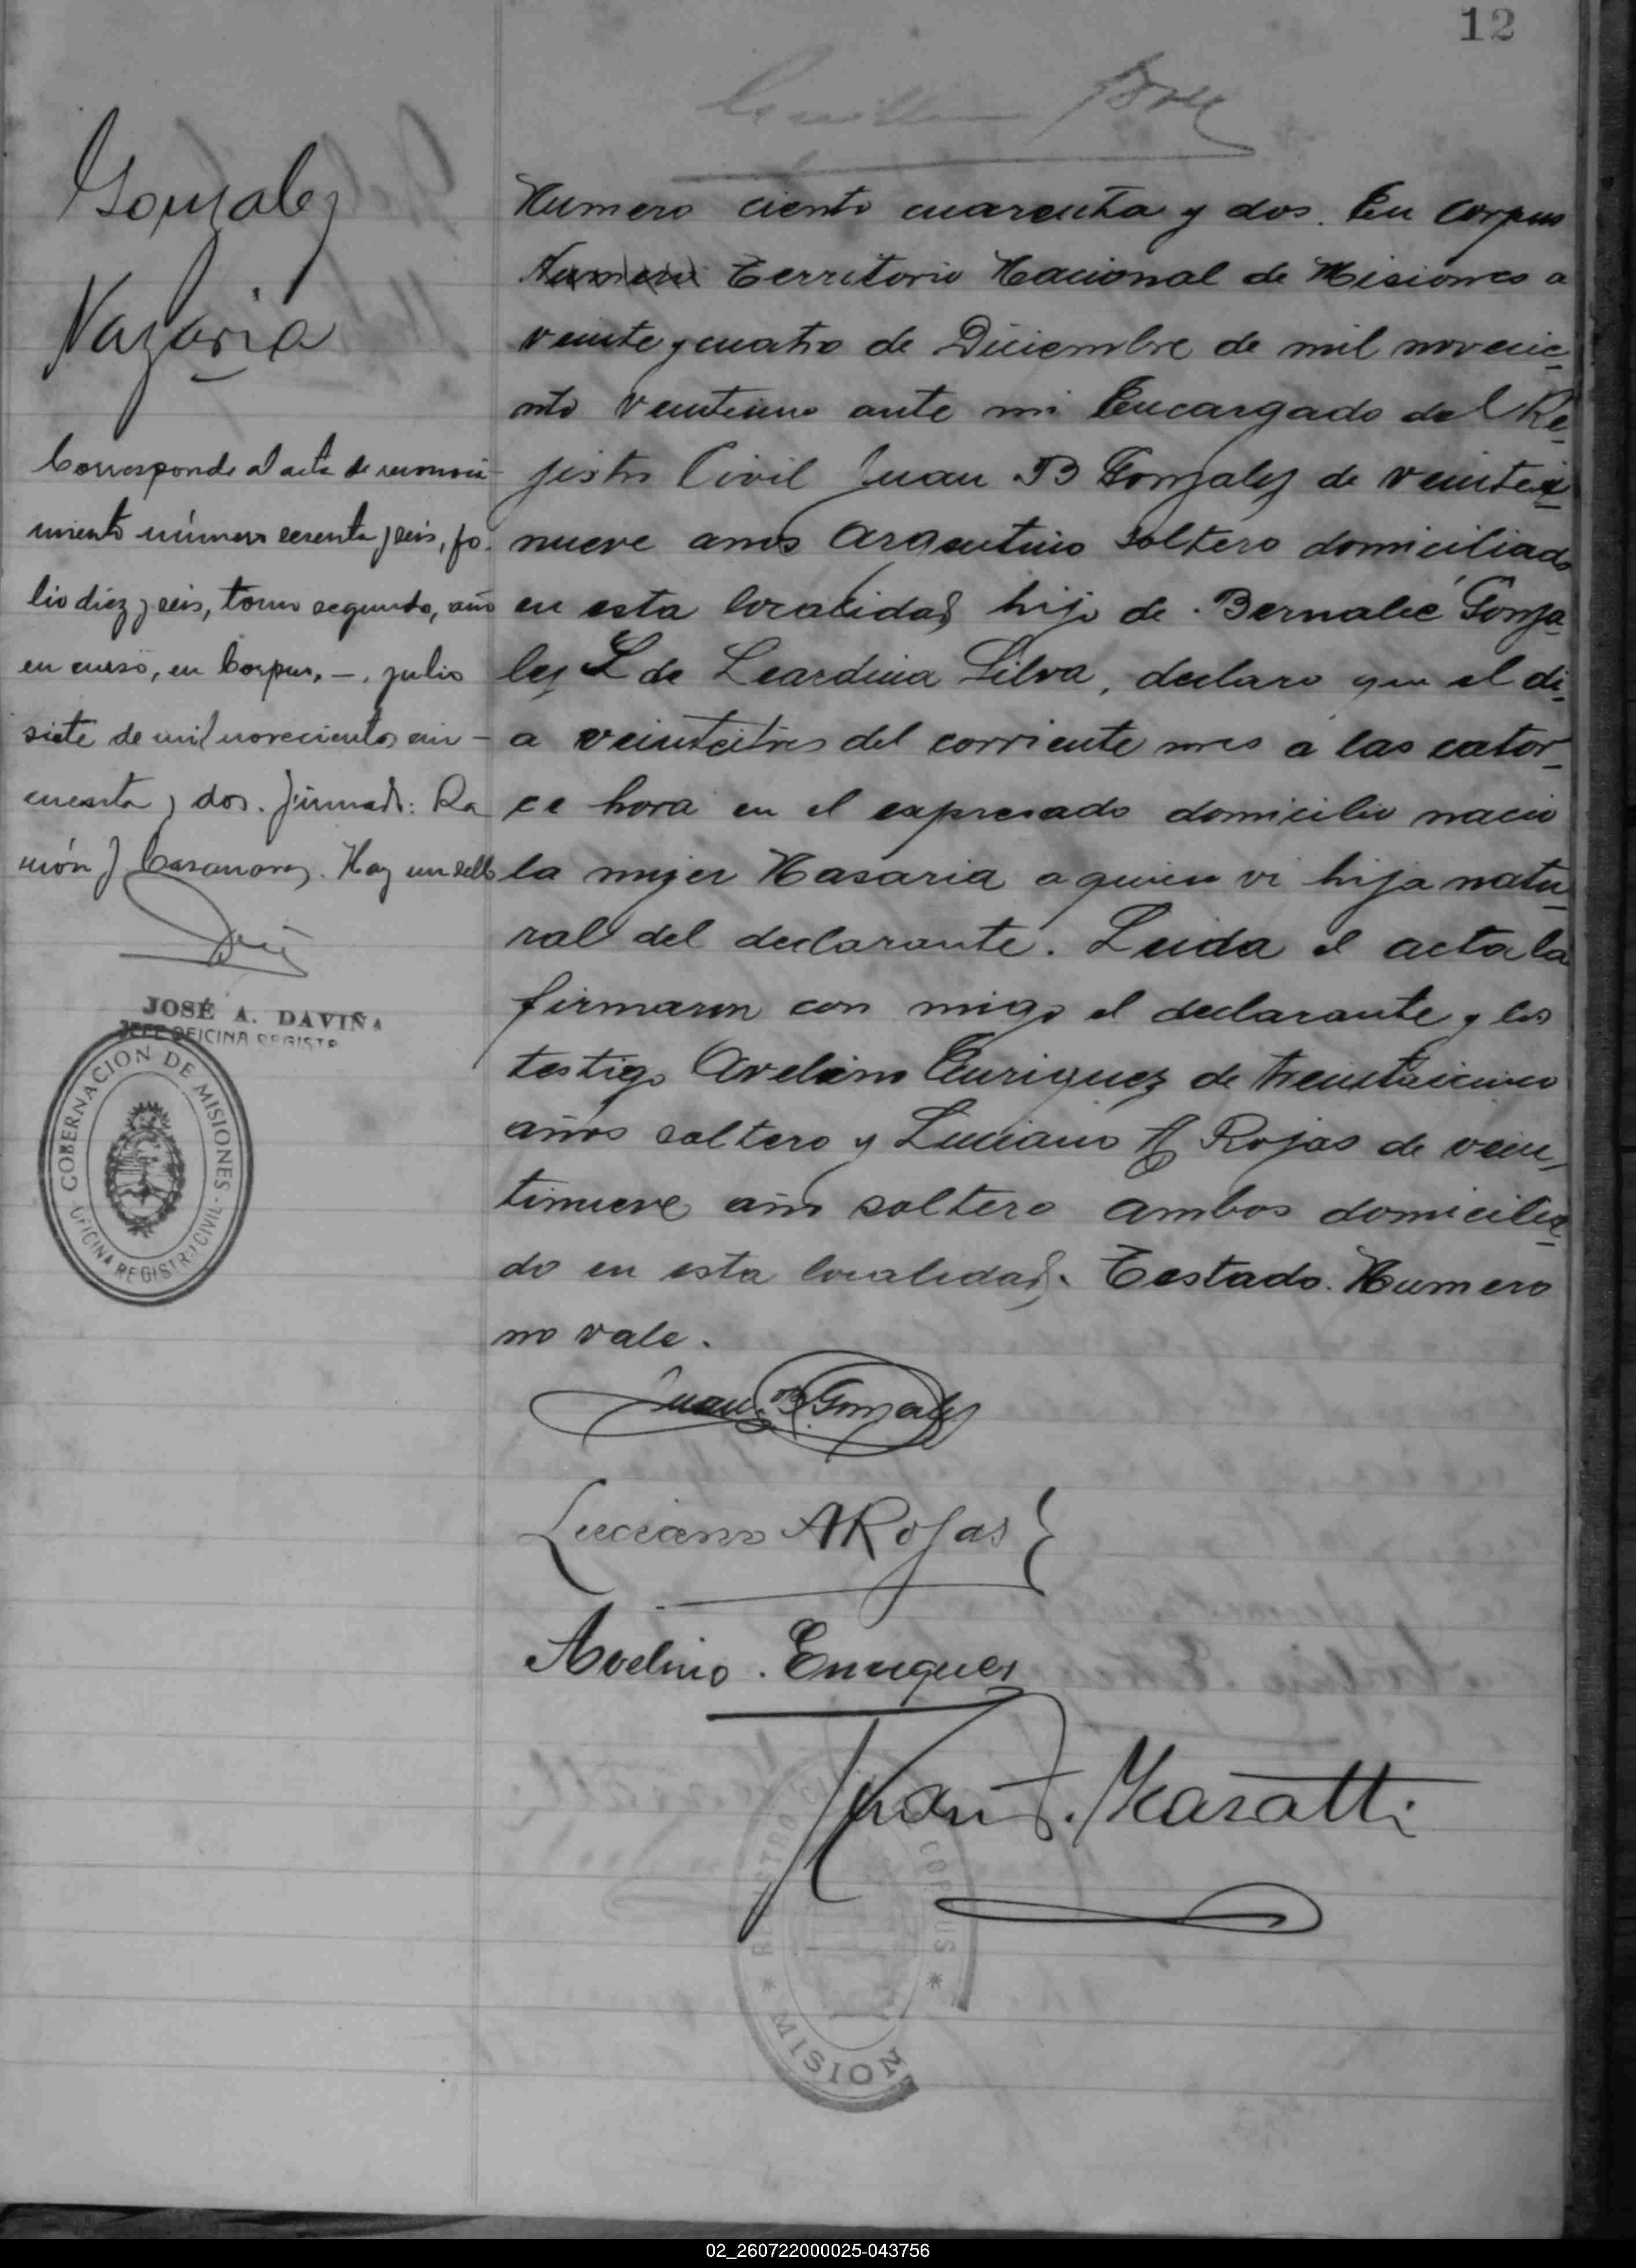 12
Gonzalez
Nazaria
Corresponde al acta de reconoci-
miento número sesenta y seis, fo-
lio diez y seis, tomo segundo, año
en curso, en Corpus, -, julio
siete de mil novecientos cin-
cuenta y dos. Firmado: Ra
món J Casanova. Hay un sello
JOSÉ A. DAVIÑA
JEFE OFICINA REGISTR
GOBERNACION DE MISIONES
OFICINA REGISTRO CIVIL
Numero ciento cuarenta y dos. En Corpus
Numero Territorio Nacional de Misiones a
veinte y cuatro de Diciembre de mil novecie-
nto veintiuno ante mi Encargado del Re-
jistro Civil Juan B Gonzalez de veintei
nueve anos Argentino soltero domiciliado
en esta localidad hijo de Bernabé Gonza-
lez L de Leardina Silva, declaro que el di-
a veinteitres del corriente mes a las cator-
ce hora en el expresado domicilio nacio
la mujer Nasaria a quien vi hija natu-
ral del declarante. Leida el acta la
firmaron con migo el declarante y los
testigo Avelino Enriquez de treintaicinco
años soltero y Luciano A Rojas de vein-
tinueve año soltero ambos domicilia-
do en esta localidad. Testado. Numero
no vale.
Juan B. Gonzalez
Luciano A Rojas
Avelino. Enriquez
Juan F. Maratti
CORPUS * MISION
02_260722000025-043756